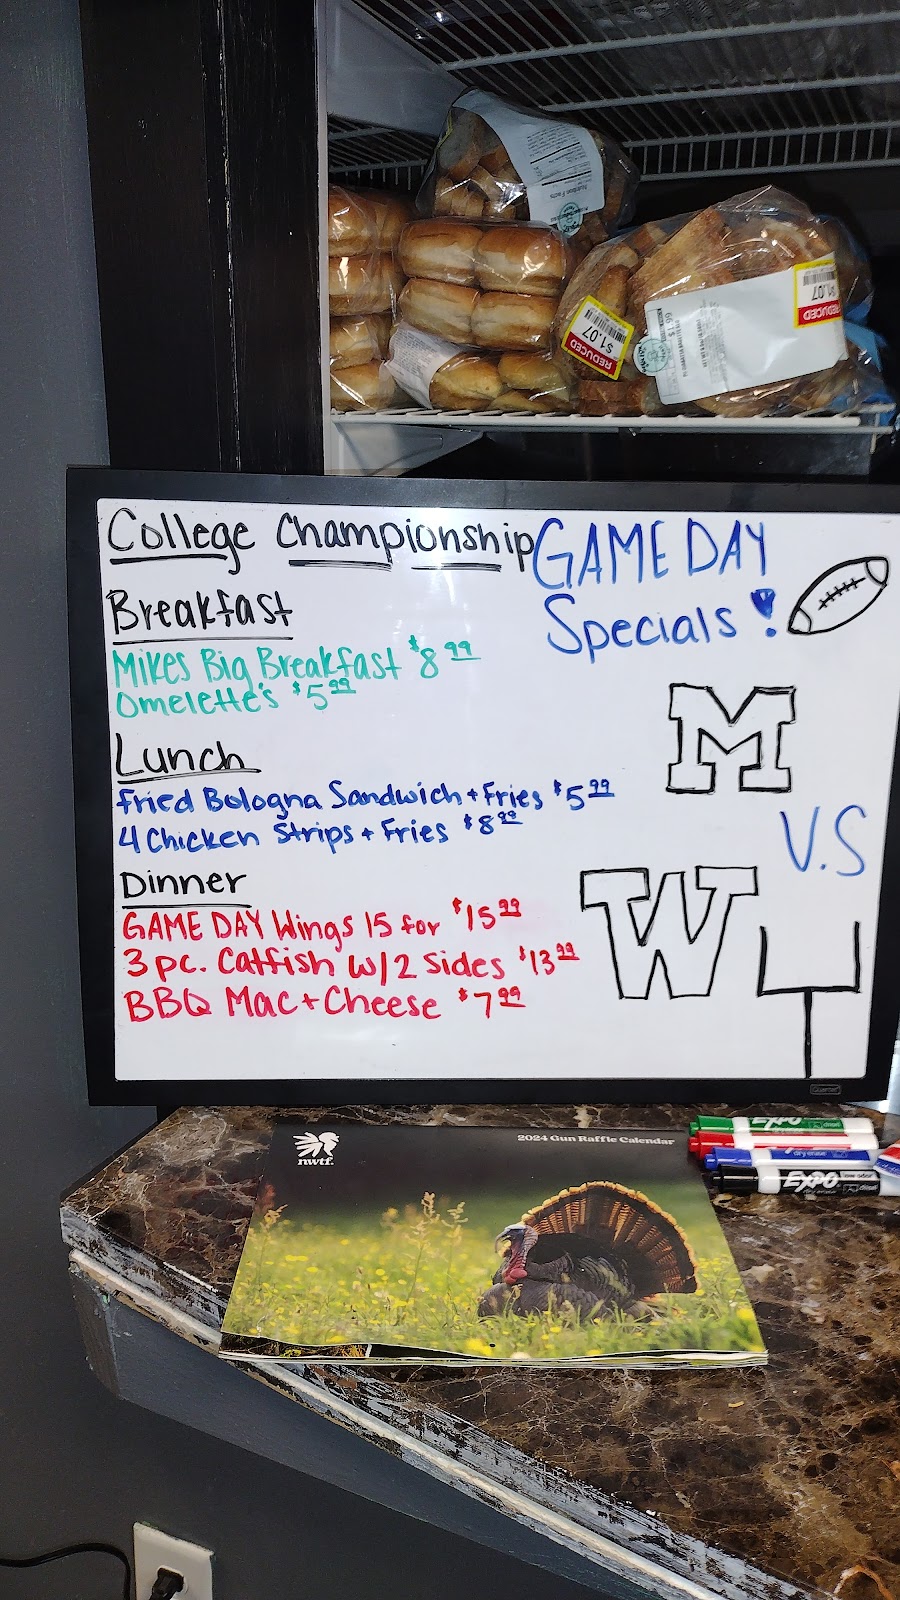 REDUCED
$1.07
REDUCED
$1.07
Nutrition Facts
College Championship
GAME DAY
Specials!
Breakfast
Mikes Big Breakfast $8.99
Omelette's $5.99
Lunch
Fried Bologna Sandwich + Fries $5.99
4 Chicken Strips + Fries $8.99
Dinner
GAME DAY Wings 15 for $15.99
3 pc. Catfish w/2 Sides $13.99
BBQ Mac + Cheese $7.99
M
V.S
W
nwtf.
2024 Gun Raffle Calendar
EXPO
dry erase
EXPO